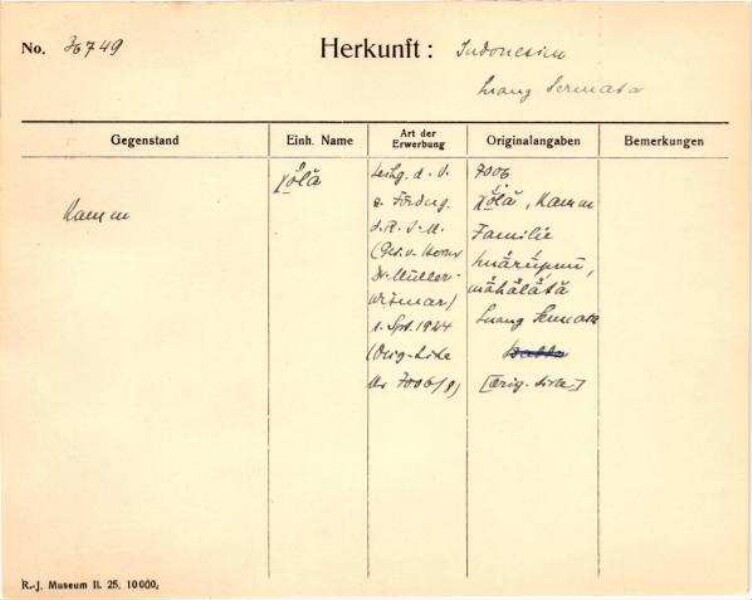 No. 36749 Herkunft: Indonesien
Luang Sermata
Gegenstand Einh. Name Art der Erwerbung Originalangaben Bemerkungen
Kamm
χŏlă
Leihg. d. V.
z. Fördrg.
d. R. J. M.
(Ges. v. Herrn
Dr. Müller-
Wismar)
1. Spt. 1944
(Orig-Liste
Nr 7006/8)
7006
χŏlă, Kamm
Familie
măhălătă
Luang Sermata
[Orig. Liste.]
R.-J. Museum II. 25. 10000.